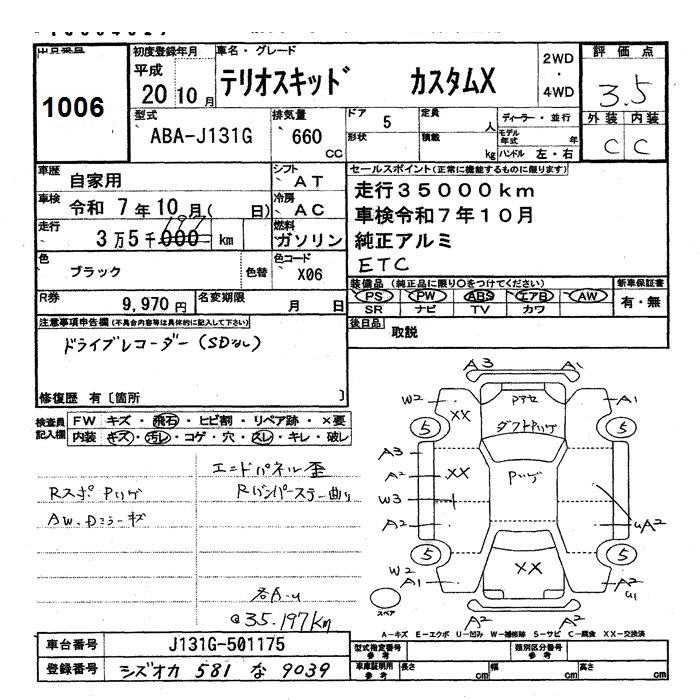 出品番号 初度登録年月 車名・グレード 2WD・4WD 評価点
1006 平成 20 年 10 月 テリオスキッド カスタムX 3.5
型式 ABA-J131G 排気量 660 CC ドア 5 形状 定員 人 積載 kg ディーラー・並行 モデル年式 年 ハンドル 左・右 外装 C 内装 C
車歴 自家用 シフト AT セールスポイント(正常に機能するものに限ります)
車検 令和 7年10月( 日) 冷房 AC 走行35000km
走行 3万5千000 197 km 燃料 ガソリン 車検令和7年10月
純正アルミ
色 ブラック 色替 色コード X06 ETC
装備品(純正品に限り○をつけてください) 新車保証書
PS PW ABS エアB AW 有・無
SR ナビ TV カワ
R券 9,970円 名変期限 月 日
後日品 取説
注意事項申告欄(不具合内容等は具体的に記入して下さい)
ドライブレコーダー(SDなし)
修復歴 有〔箇所 〕
検査員記入欄 FW キズ・飛石・ヒビ割・リペア跡・×要
内装 キズ・汚レ・コゲ・穴・スレ・キレ・破レ
エンドパネル歪
Rスポ Pハゲ Rバンパーステー曲り
AW.Dミラーキズ
各A-u
@35.197km
A3 A1
W2 XX A1
5 5
ダフトハゲ
A3
A2 XX Pハゲ
W3
A2 uA2
5 5
W2 A1 XX A2 u1
A2 A2
スペア
A-キズ E-エクボ U-凹み W-補修跡 S-サビ C-腐食 XX-交換済
車台番号 J131G-501175 型式指定番号 参考 類別区分番号 参考
登録番号 シズオカ 581 な 9039 車庫証明用 参考 長さ cm 幅 cm 高さ cm